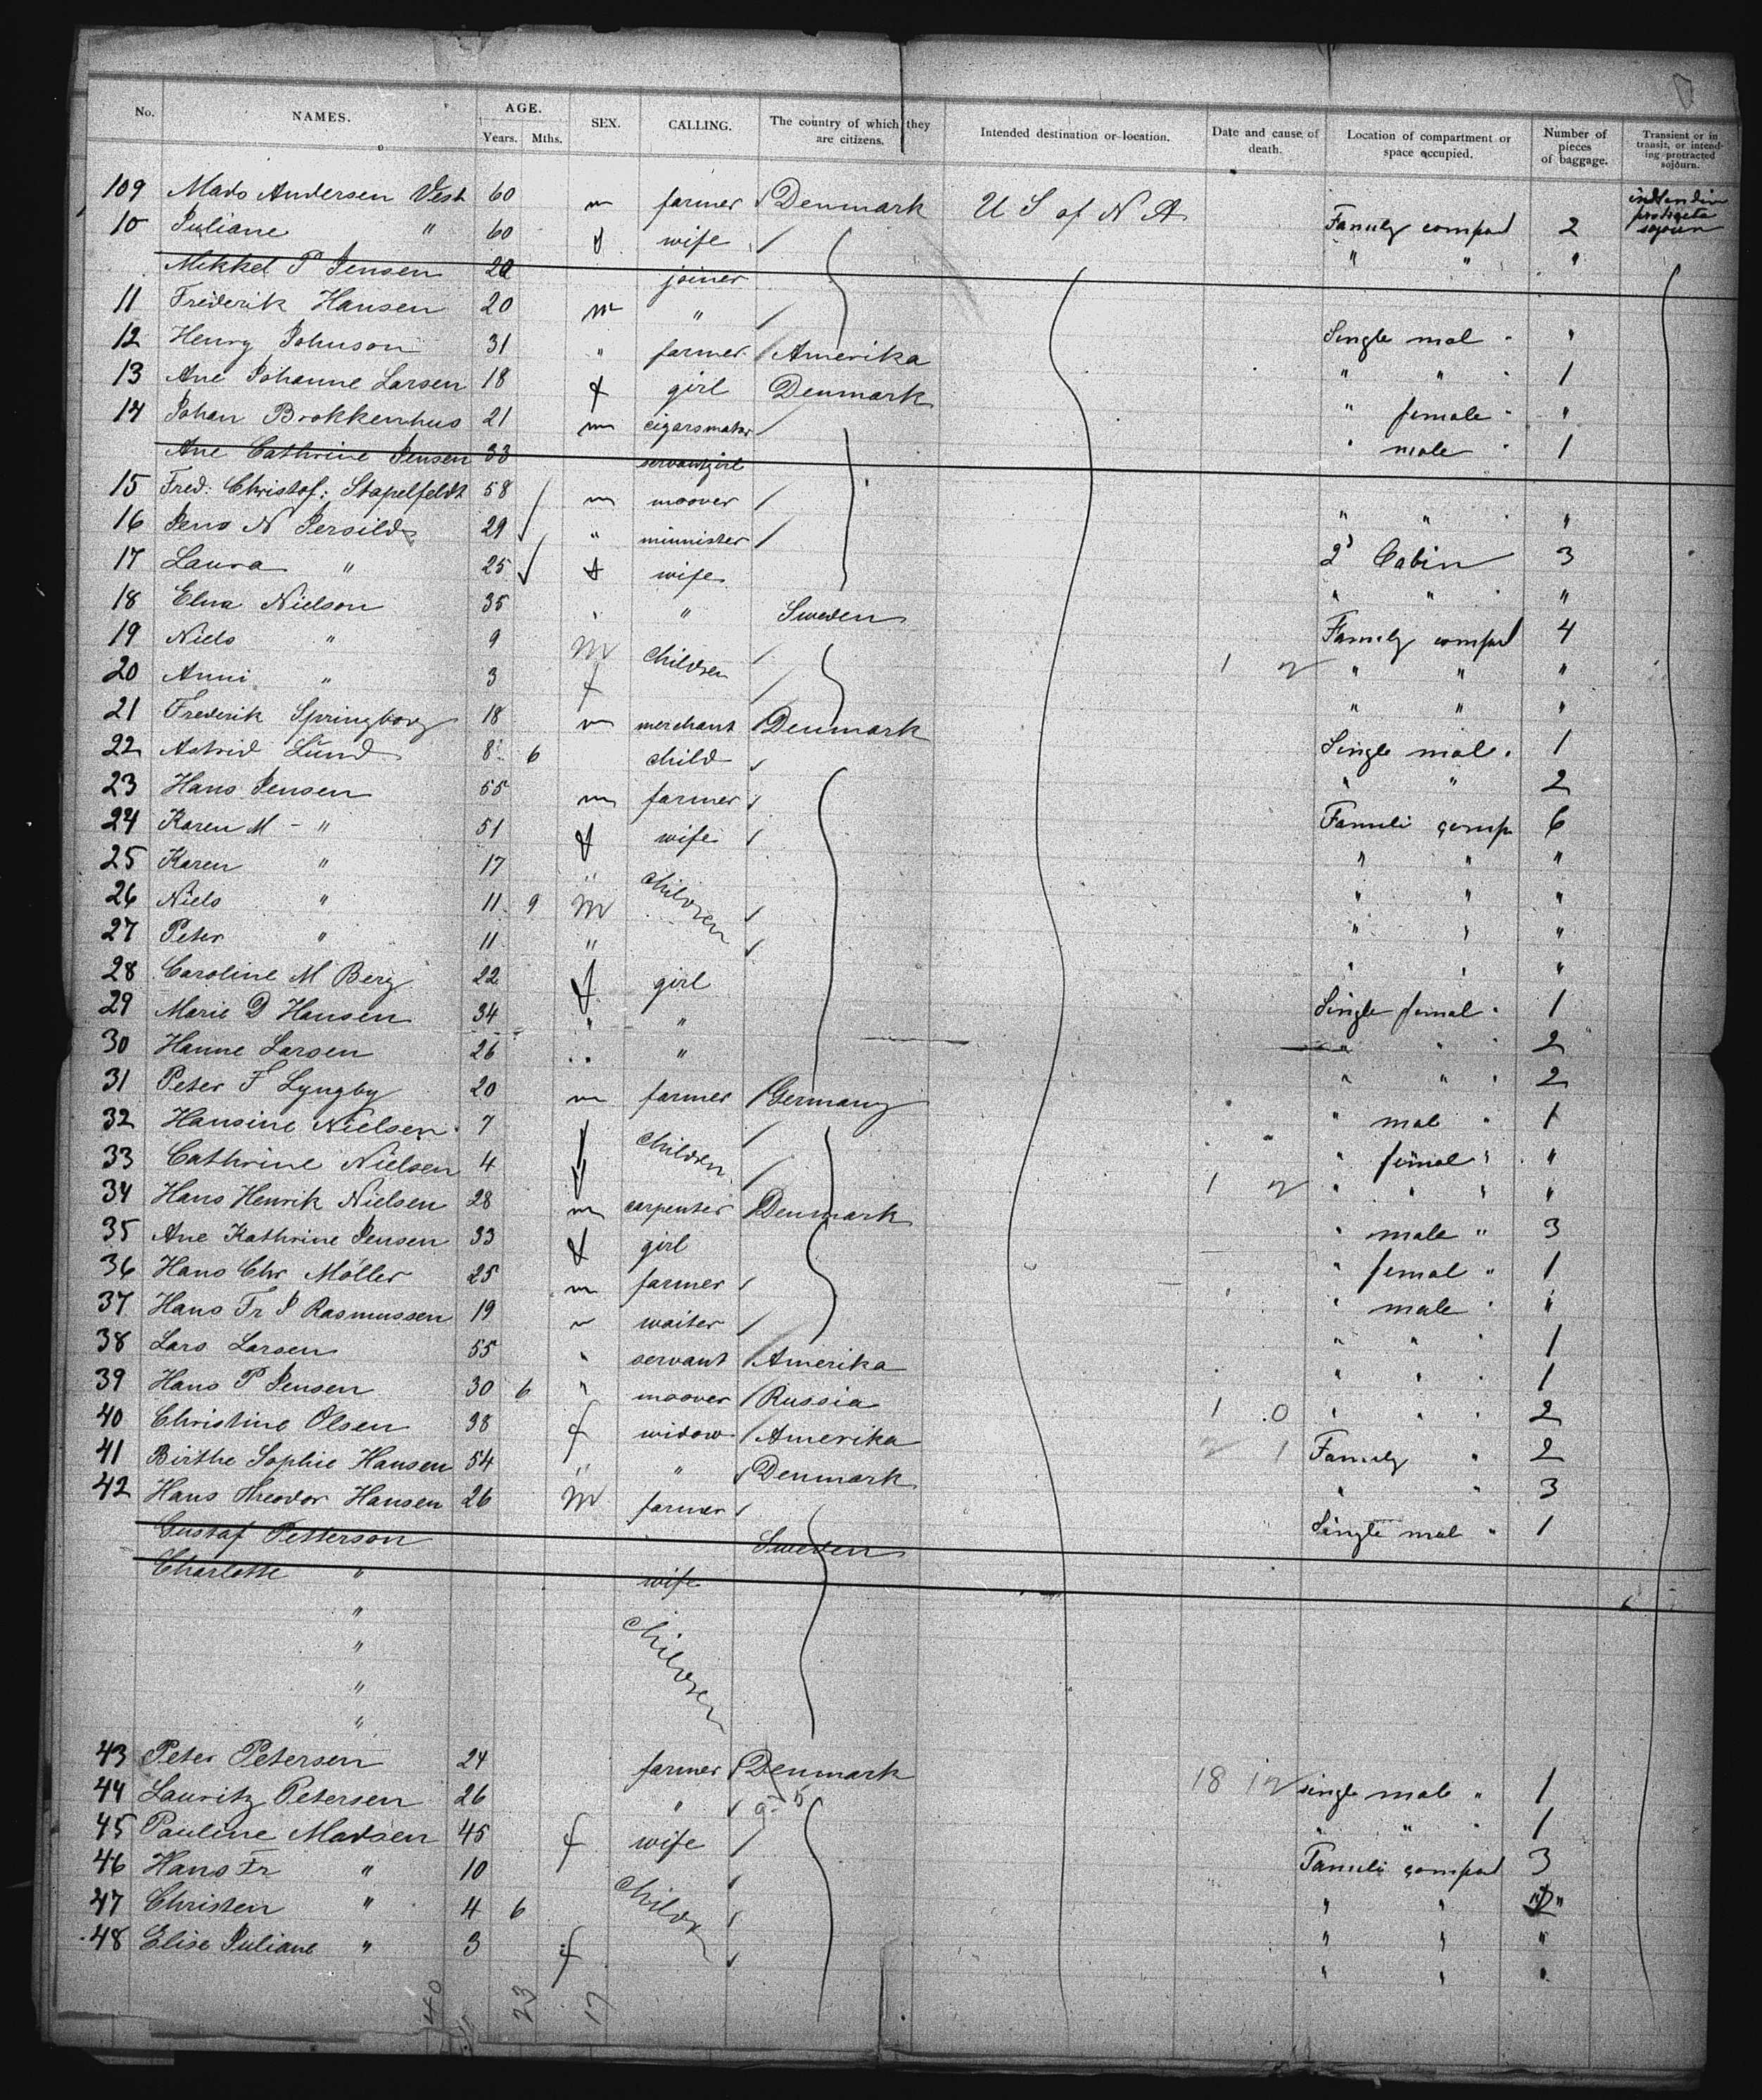 No. NAMES. AGE. Years. Mths. SEX. CALLING. The country of which they are citizens. Intended destination or location. Date and cause of death. Location of compartment or space occupied. Number of pieces of baggage. Transient or in transit, or intending protracted sojourn.
109 Mads Andersen Vest 60 m farmer Denmark U S of N A Family compart 2
10 Juliane " 60 f wife " " "
Mikkel P Jensen 22 joiner
11 Frederik Hansen 20 m " Single mal " "
12 Henry Johnson 31 " farmer Amerika " " " 1
13 Ane Johanne Larsen 18 f girl Denmark " female " "
14 Johan Brokkenhus 21 m cigarsmaker " male " 1
Ane Cathrine Jensen 33 servantgirl
15 Fred: Christof: Stapelfeldt 58 m moover " " " "
16 Jens N Jersild 29 " minnister 2d Cabin 3
17 Laura " 25 f wife " " "
18 Elna Nielson 35 " " Sweden Family compart 4
19 Niels " 9 m children 1 2 " " "
20 Anni " 3 f " " "
21 Frederik Springborg 18 m merchant Denmark Single mal. " 1
22 Astrid Lund 8 6 child " " 2
23 Hans Jensen 55 m farmer Famili comp 6
24 Karen M - " 51 f wife " " "
25 Karen " 17 " children " " "
26 Niels " 11 9 m " " "
27 Peter " 11 " " " "
28 Caroline M Berg 22 f girl Single femal " 1
29 Marie D Hansen 34 " " " " " 2
30 Hanne Larsen 26 " " " " " 2
31 Peter F Lyngby 20 m farmer Germany " mal " 1
32 Hansine Nielsen 7 f children " femal " "
33 Cathrine Nielsen 4 f 1 2 " " " "
34 Hans Henrik Nielsen 28 m carpenter Denmark " male " 3
35 Ane Kathrine Jensen 33 f girl " femal " 1
36 Hans Chr Möller 25 m farmer " male " "
37 Hans Fr P Rasmussen 19 m waiter " " " 1
38 Lars Larsen 55 " servant Amerika " " " 1
39 Hans P Jensen 30 6 " moover Russia 1 0 " " " 2
40 Christine Olsen 38 f widow Amerika 2 1 Family " 2
41 Birthe Sophie Hansen 54 " " Denmark " " 3
42 Hans Theodor Hansen 26 m farmer Single mal " 1
Gustaf Petterson Sweden
Charlotte " wife
" children
"
"
"
43 Peter Petersen 24 farmer Denmark 18 12 single male " 1
44 Lauritz Petersen 26 " " " " 1
45 Pauline Madsen 45 f wife Famili compart 3
46 Hans Fr " 10 children " " "
47 Christen " 4 6 " " "
48 Elise Juliane " 3 f " " "
40 23 17